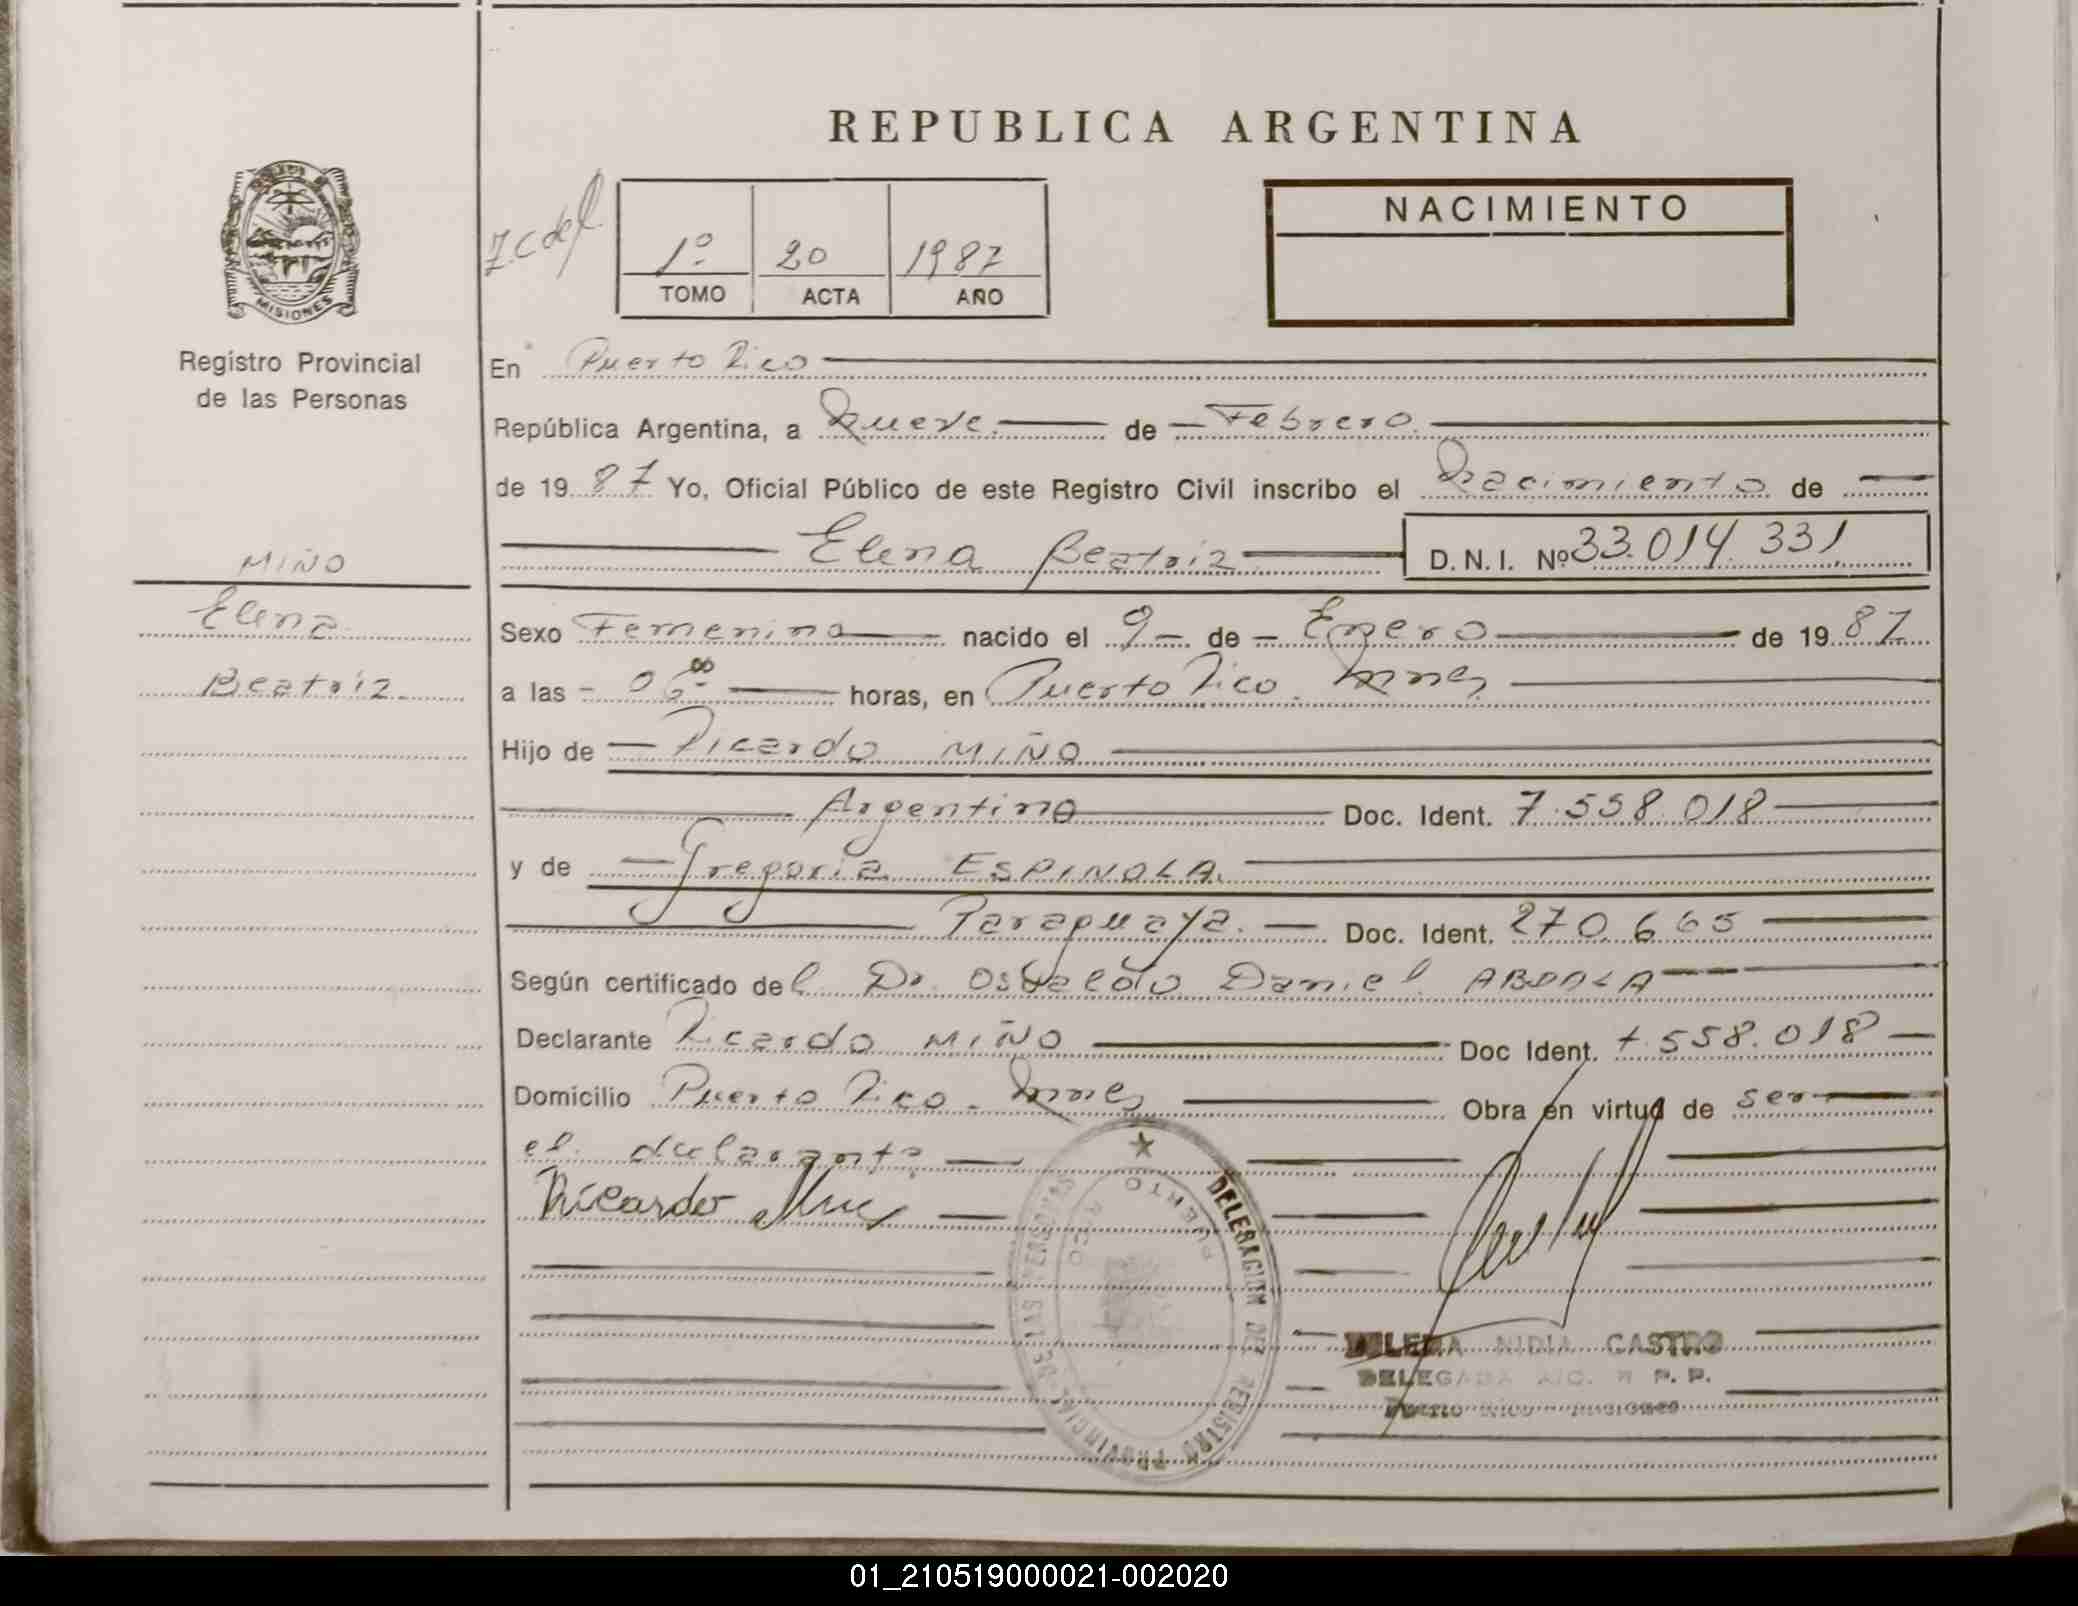 REPUBLICA ARGENTINA
MISIONES
Registro Provincial
de las Personas
1º 20 1987
TOMO ACTA AÑO
NACIMIENTO
En Puerto Rico
República Argentina, a Nueve de Febrero
de 1987 Yo, Oficial Público de este Registro Civil inscribo el Nacimiento de
Elena Beatriz D.N.I. Nº 33.014.331
MIÑO
Elena
Beatriz
Sexo Femenino nacido el 9 de Enero de 1987
a las 06 horas, en Puerto Rico. Mnes
Hijo de Ricardo MIÑO
Argentino Doc. Ident. 7.558.018
y de Gregoria ESPINOLA
Paraguaya. Doc. Ident. 270.665
Según certificado del Dr. Osvaldo Daniel ABDALA
Declarante Ricardo MIÑO Doc Ident. 7.558.018
Domicilio Puerto Rico. Mnes Obra en virtud de ser
el declarante
Ricardo
DELEGACION DEL REGISTRO PROVINCIAL DE LAS PERSONAS
PUERTO RICO
NIDIA CASTRO
DELEGADA R. P. P.
PUERTO RICO MISIONES
01_210519000021-002020